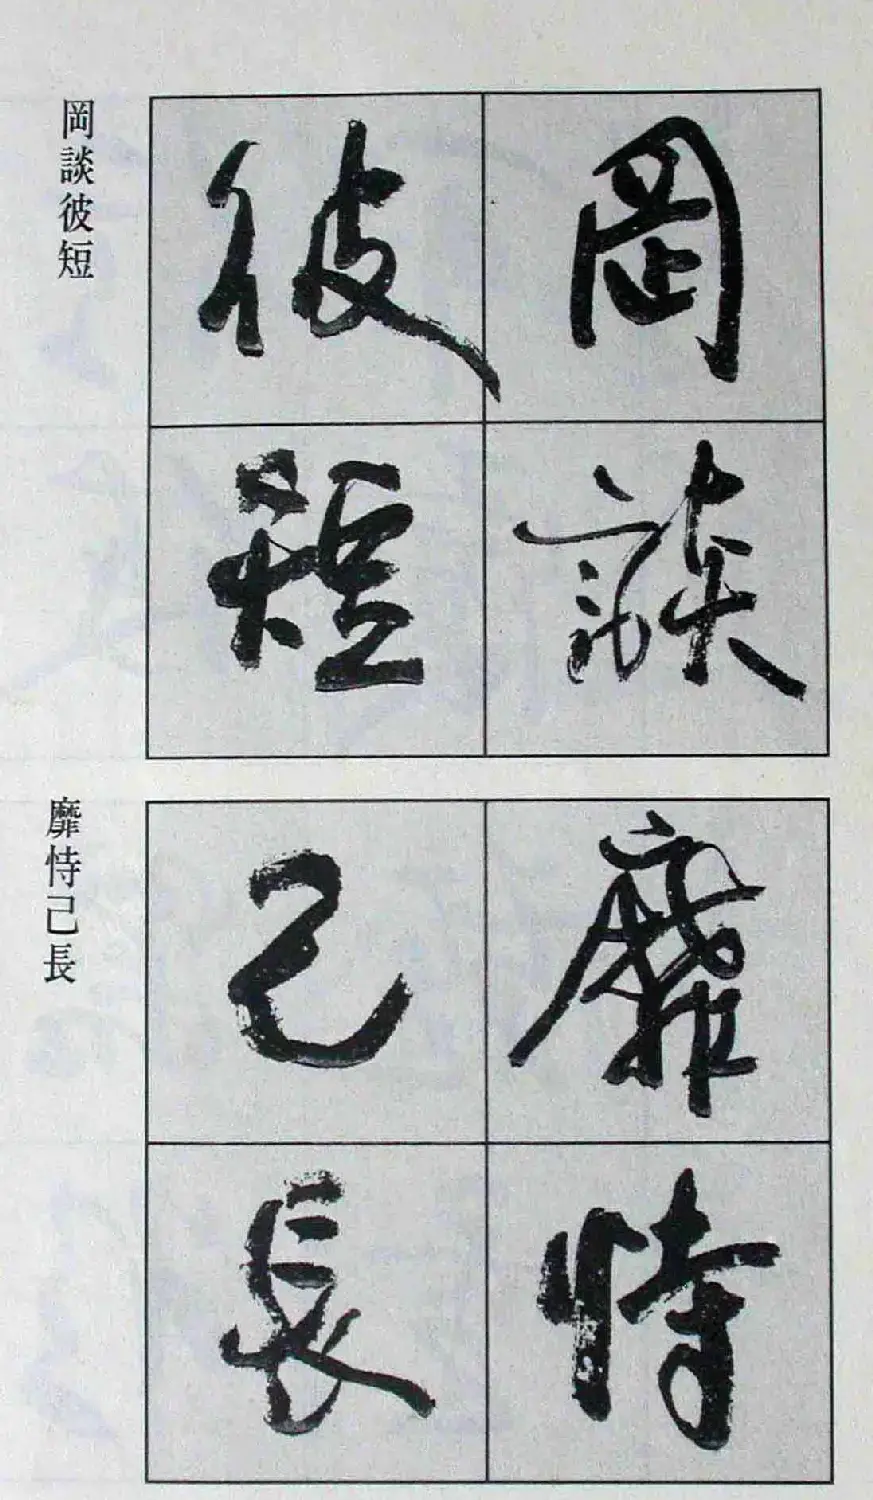 岡談
彼短
岡談彼短
靡恃
己長
靡恃己長